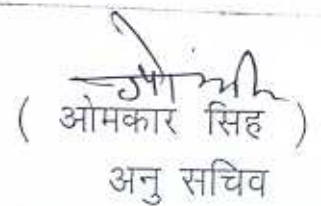 ( ओमकार सिंह )
अनु सचिव